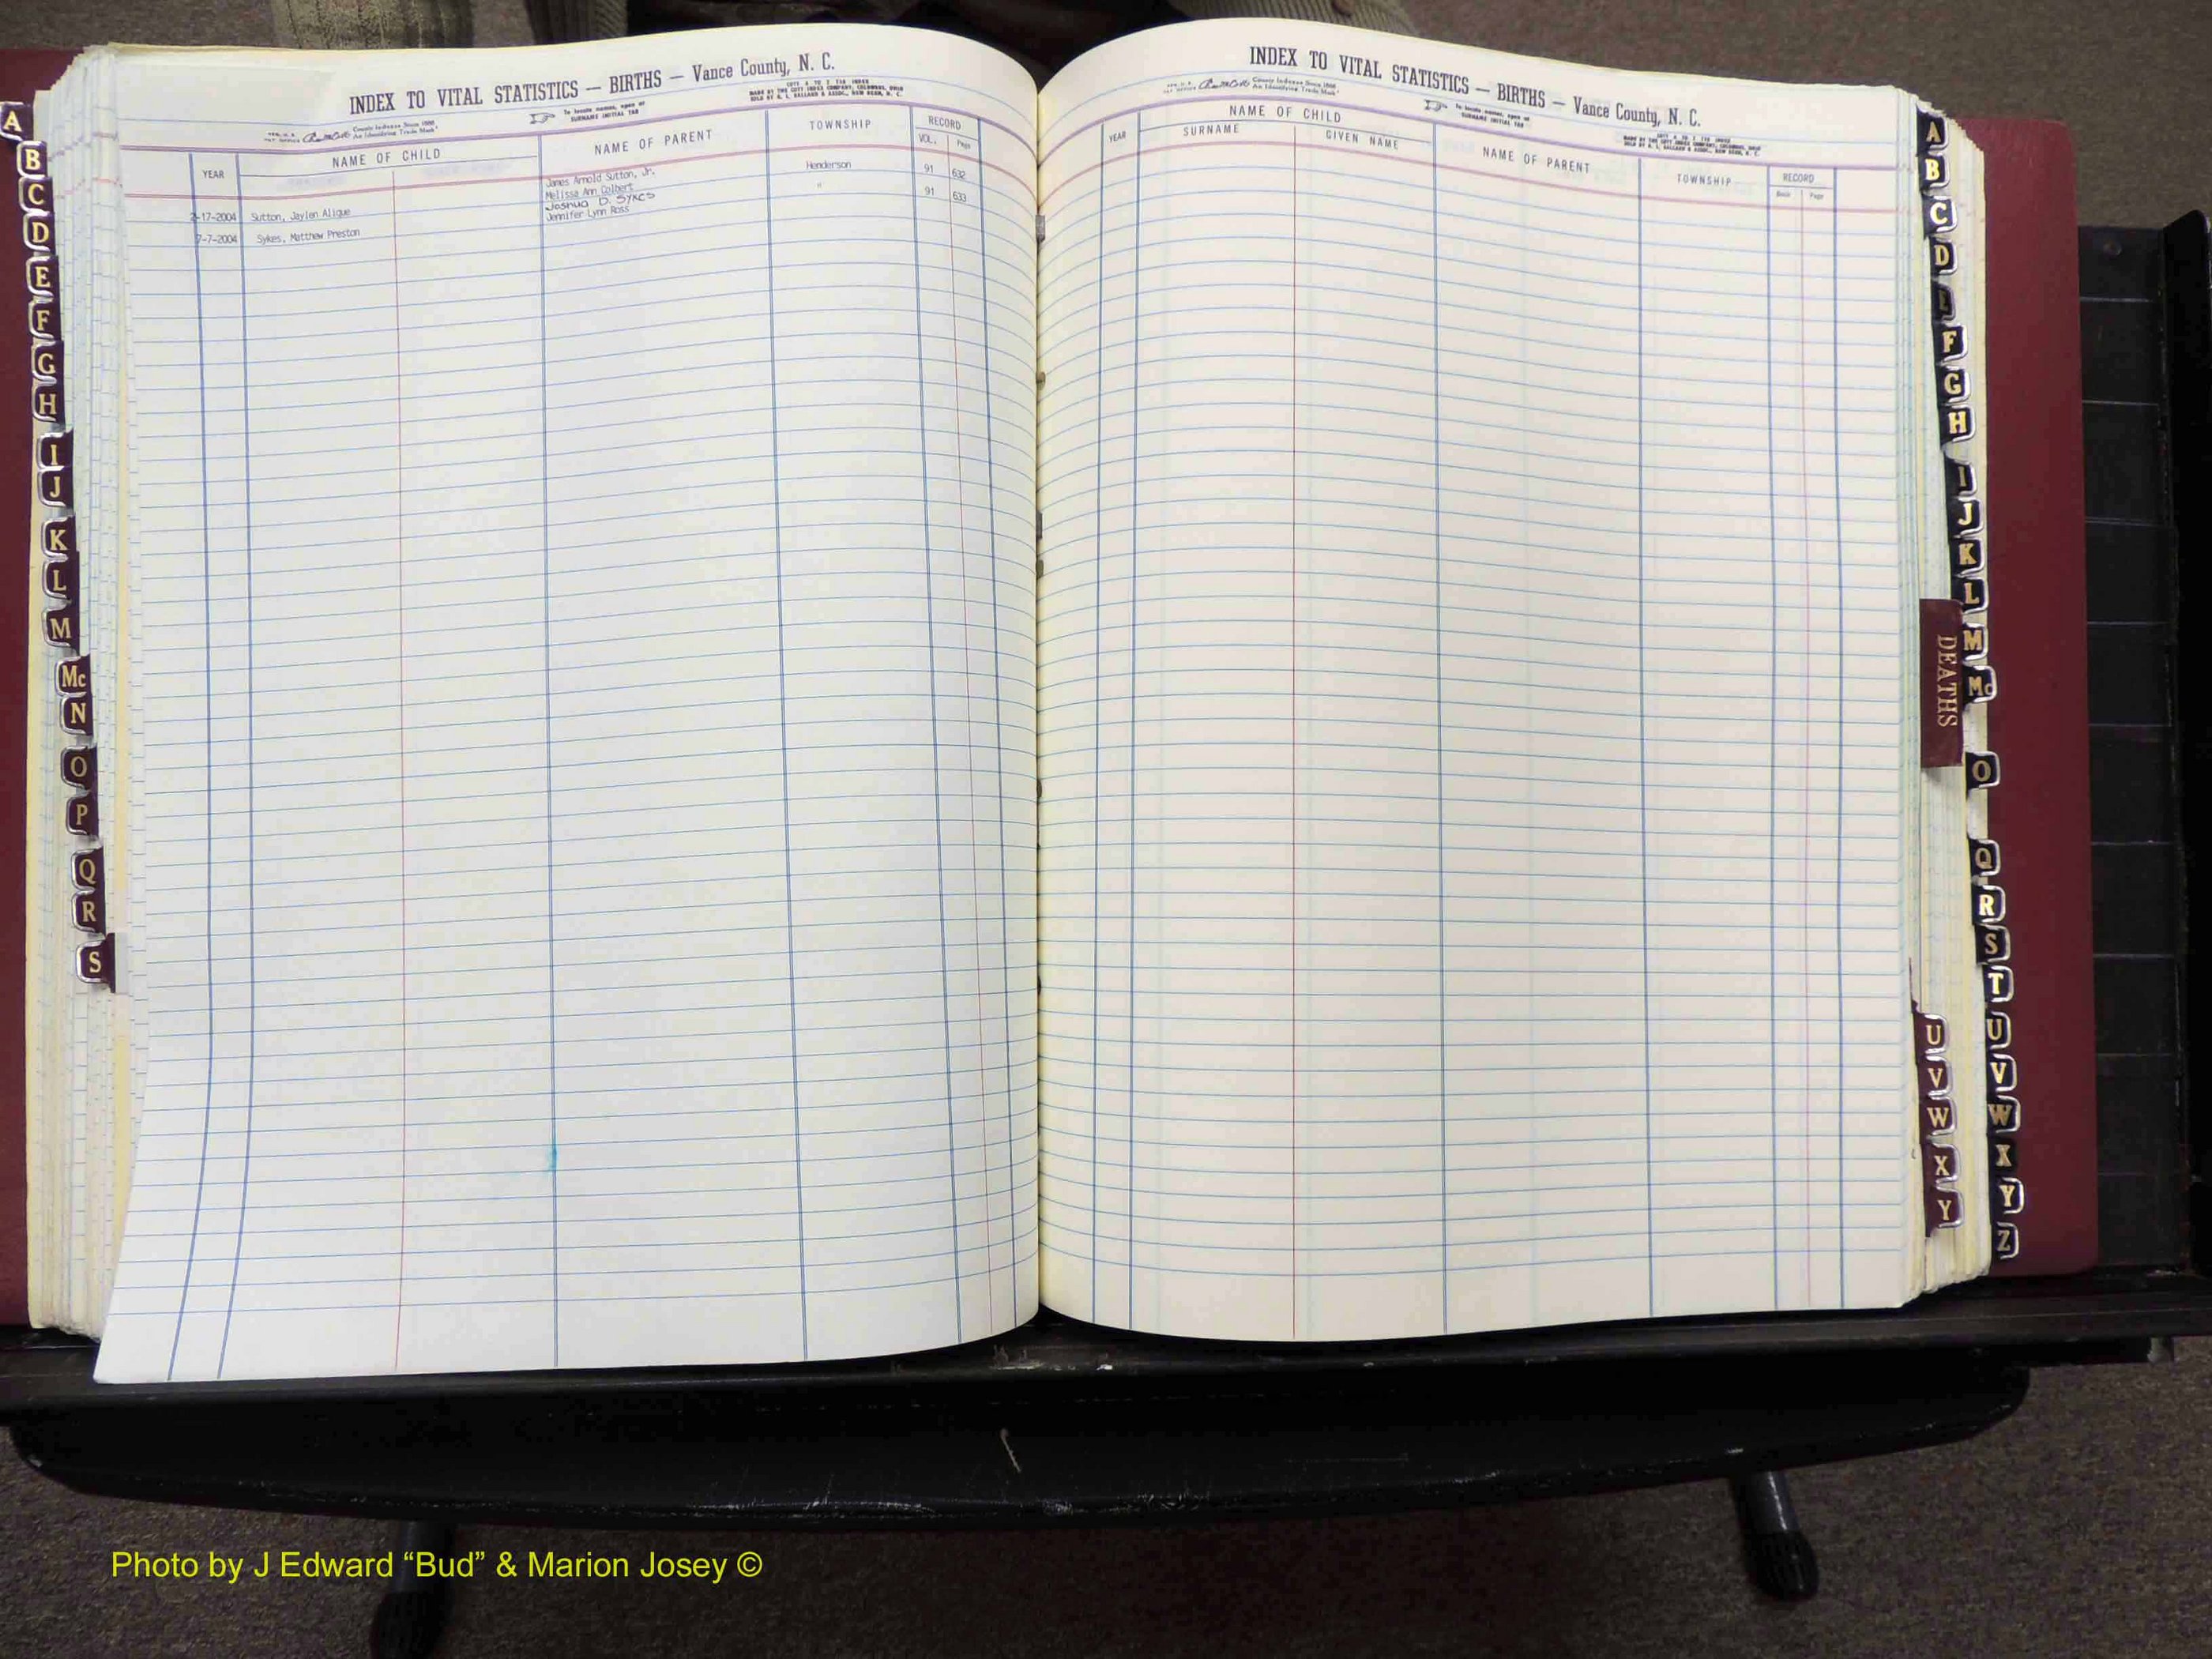 INDEX TO VITAL STATISTICS — BIRTHS — Vance County, N. C.
County Indexes Since 1888
An Identifying Trade Mark
To locate names, open at
SURNAME INITIAL TAB
COTT A TO Z TAB INDEX
MADE BY THE COTT INDEX COMPANY, COLUMBUS, OHIO
SOLD BY O. G. BALLARD & ASSOC., NEW BERN, N. C.
YEAR
NAME OF CHILD
NAME OF PARENT
TOWNSHIP
RECORD
VOL. Page
2-17-2004 Sutton, Jaylen Alique James Arnold Sutton, Jr. Henderson 91 632
Melissa Ann Colbert
7-7-2004 Sykes, Matthew Preston Joshua D. Sykes " 91 633
Jennifer Lynn Ross
INDEX TO VITAL STATISTICS — BIRTHS — Vance County, N. C.
County Indexes Since 1888
An Identifying Trade Mark
To locate names, open at
SURNAME INITIAL TAB
YEAR
NAME OF CHILD
SURNAME GIVEN NAME
NAME OF PARENT
TOWNSHIP
RECORD
Book Page
A
B
C
D
E
F
G
H
I
J
K
L
M
Mc
N
O
P
Q
R
S
DEATHS
U
V
W
X
Y
A
B
C
D
E
F
G
H
I
J
K
L
M
Mc
O
Q
R
S
T
U
V
W
X
Y
Z
Photo by J Edward “Bud” & Marion Josey ©